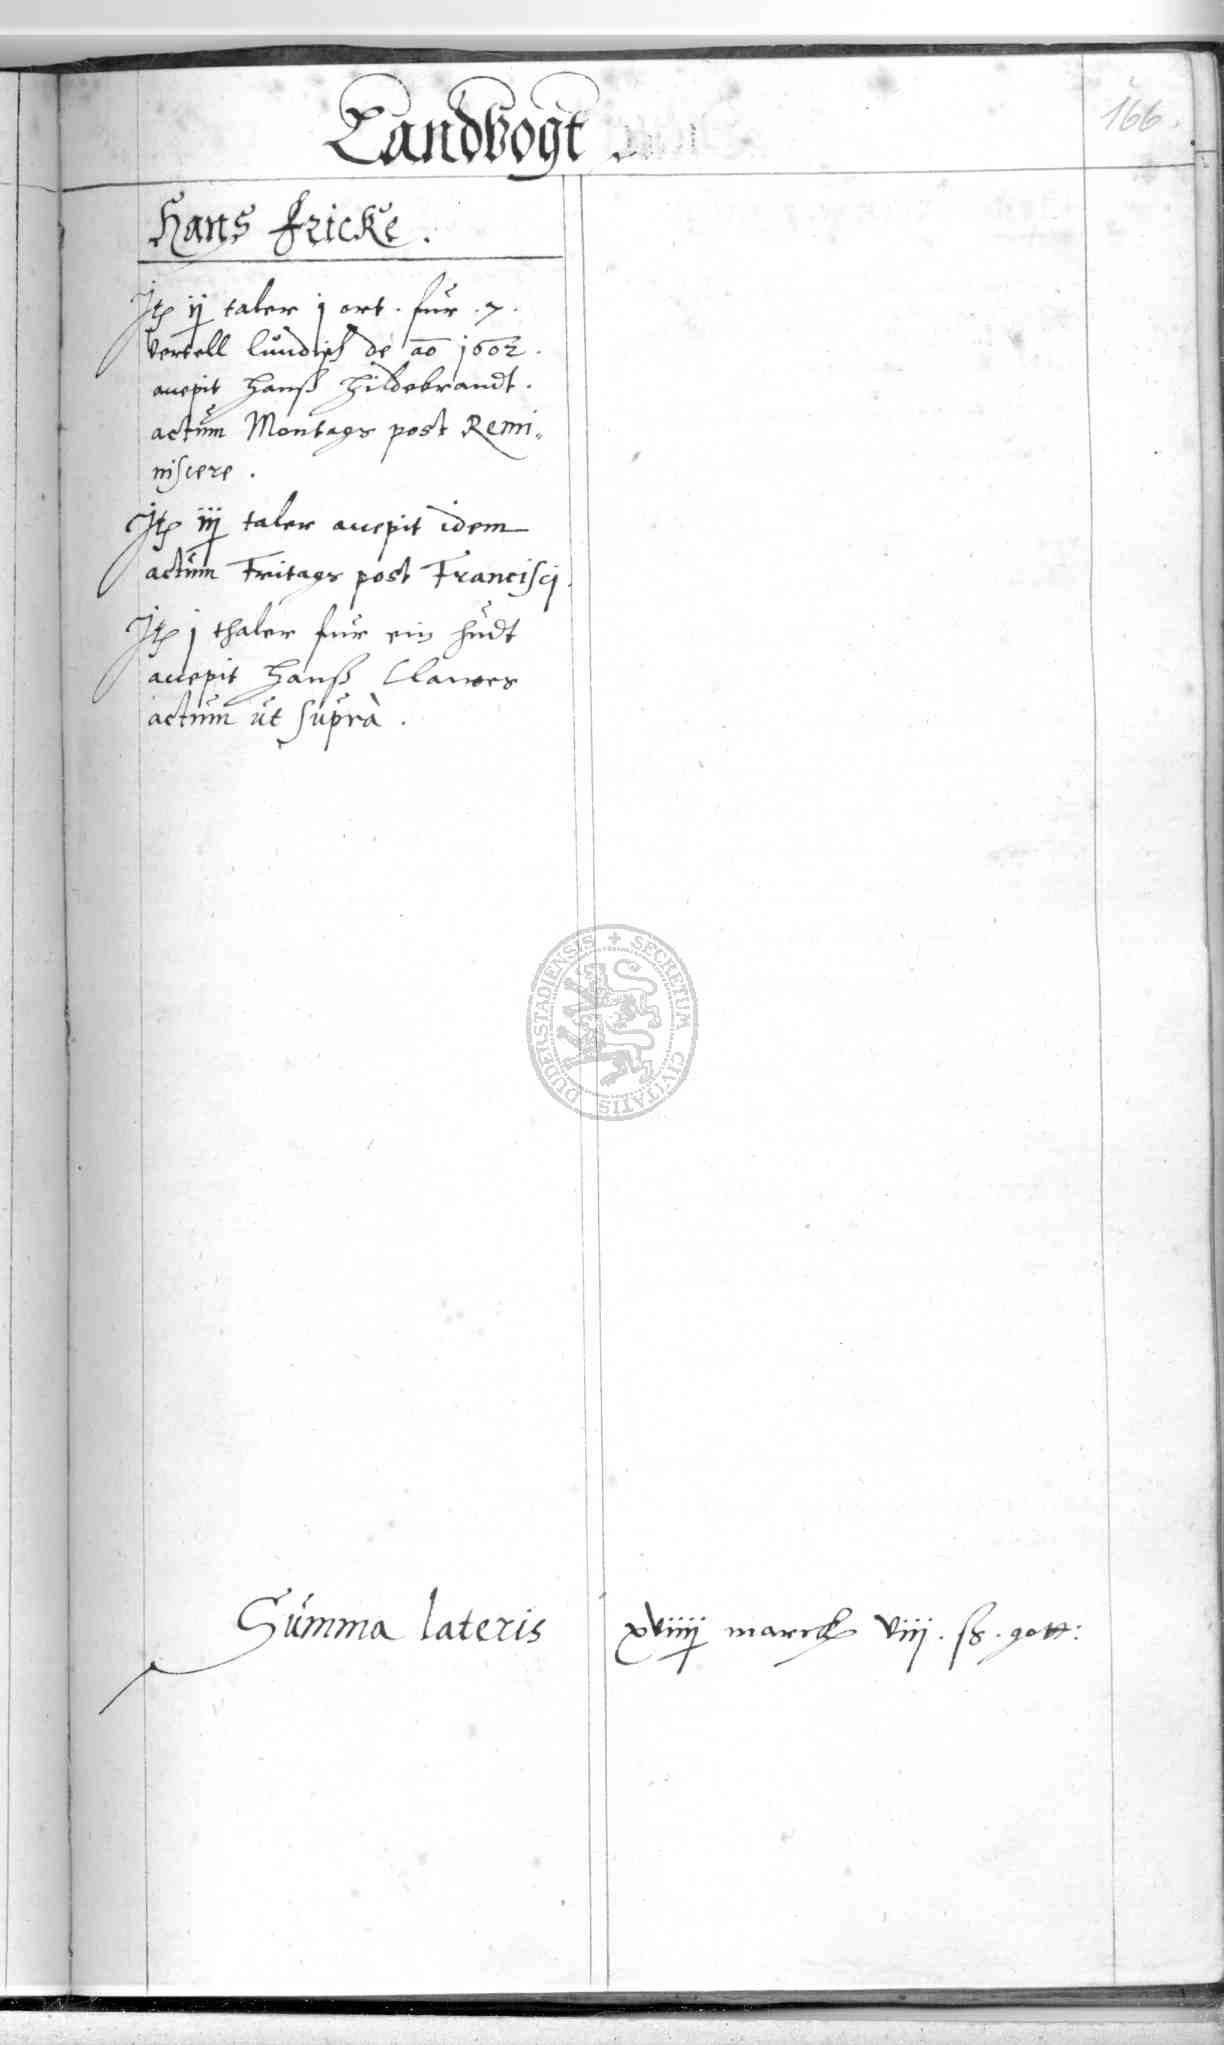 166.
Landvogt
Hans Fricke.
Itp ij taler j ort. für .7.
vertell lündisch de ao 1602.
accepit Hanß Hildebrandt.
actum Montags post Remi„
niscere.
Itp iij taler accepit idem
actum Fritags post Francisci.
Itp j thaler für ein hudt
accepit Hanß Clawes
actum ut suprà.
SECRETUM CIVITATIS DUDERSTADIENSIS
Summa lateris xviiij marck viij. ß. gott: